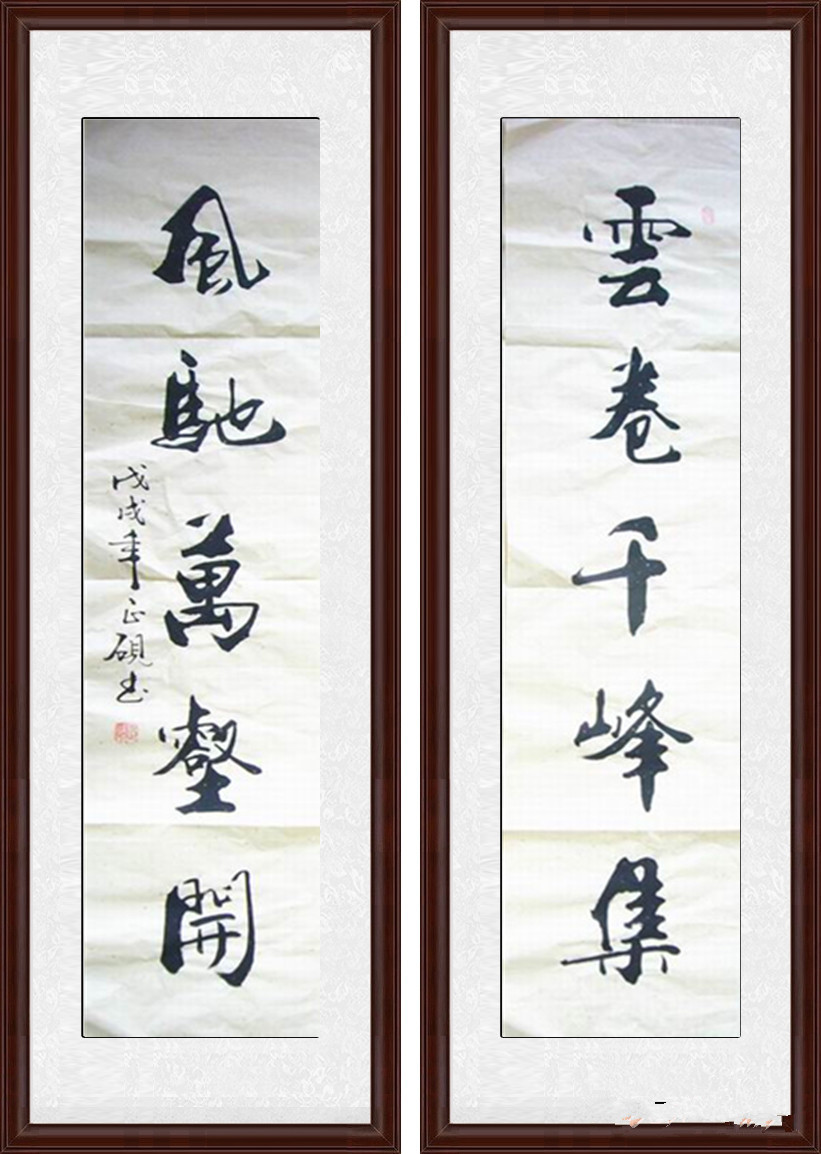 雲卷千峰集
風馳萬壑開
戊戌年正硯书